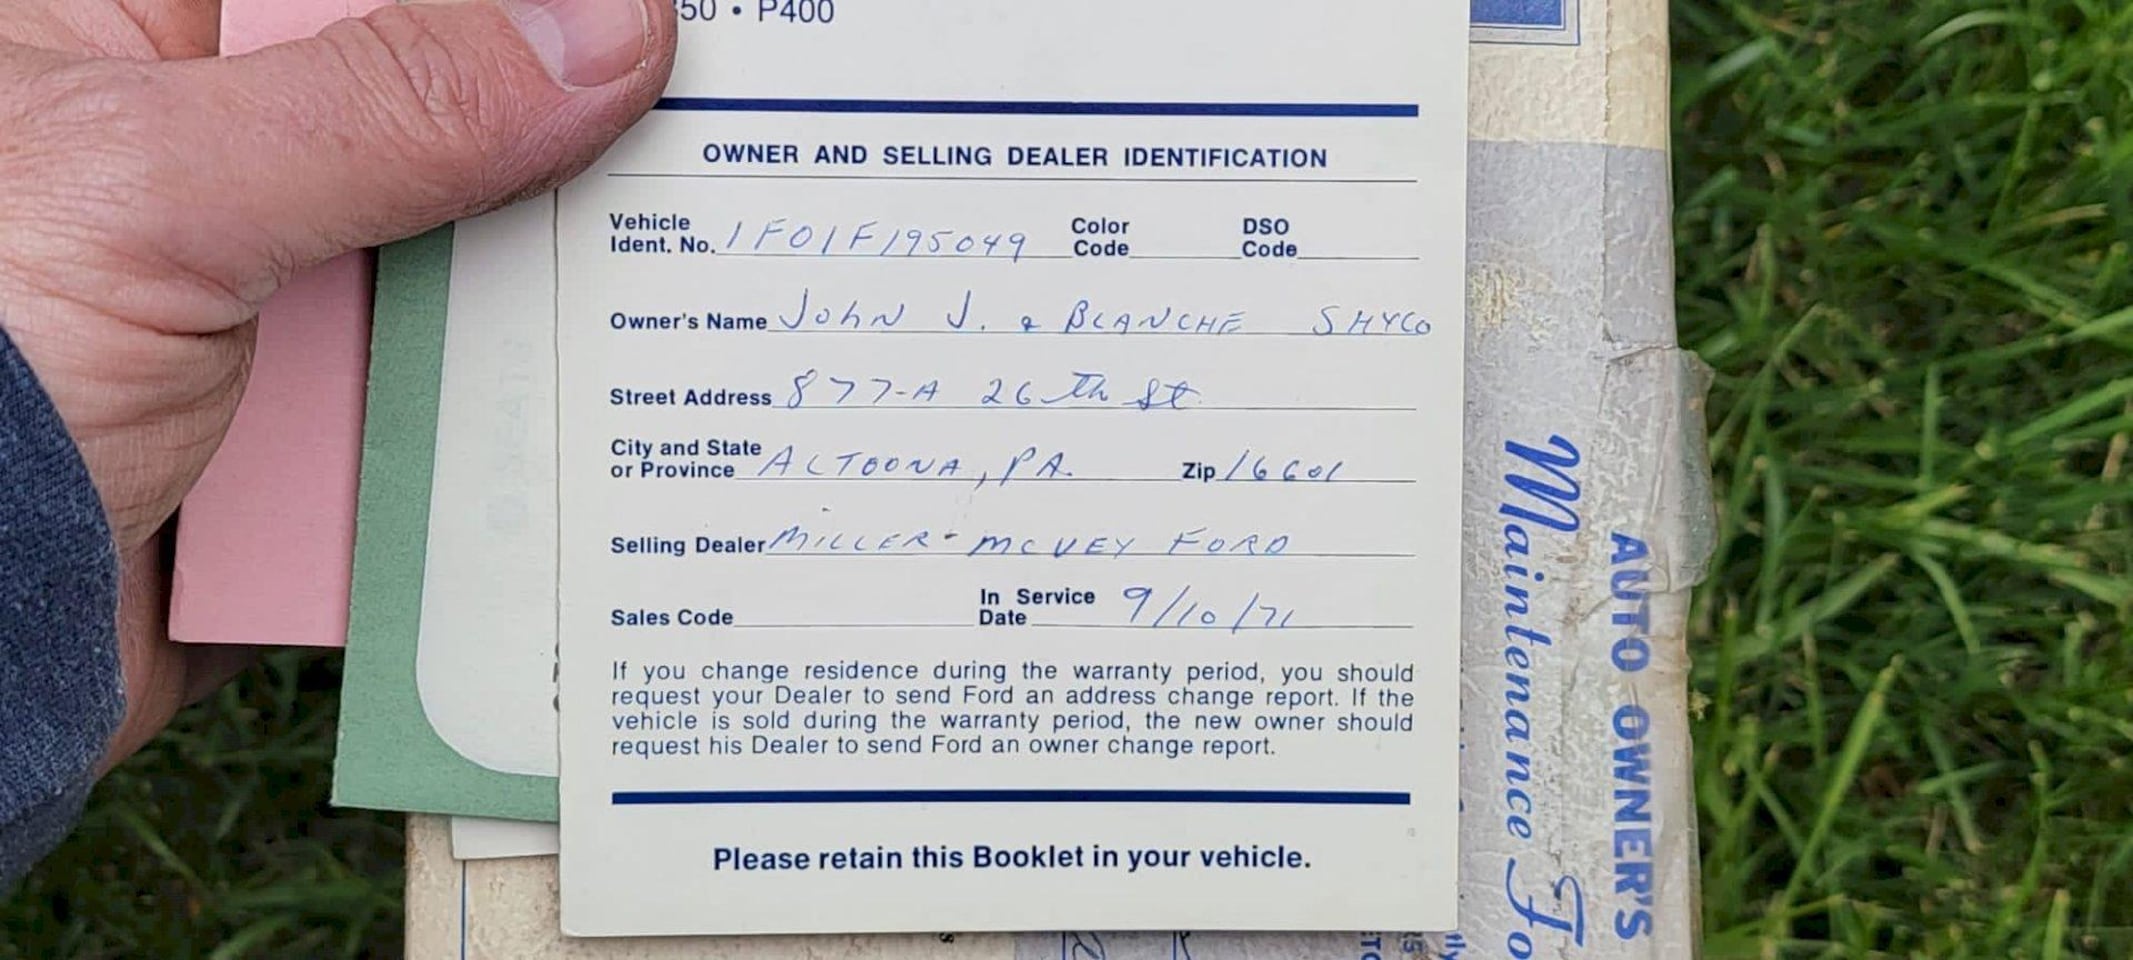 50 • P400
OWNER AND SELLING DEALER IDENTIFICATION
Vehicle Ident. No. 1F01F195049 Color Code DSO Code
Owner's Name John J. & BLANCHE SHYCO
Street Address 877-A 26th St
City and State or Province ALTOONA, PA. Zip 16601
Selling Dealer MILLER-MCVEY FORD
Sales Code In Service Date 9/10/71
If you change residence during the warranty period, you should
request your Dealer to send Ford an address change report. If the
vehicle is sold during the warranty period, the new owner should
request his Dealer to send Ford an owner change report.
Please retain this Booklet in your vehicle.
AUTO OWNER'S
Maintenance Fo